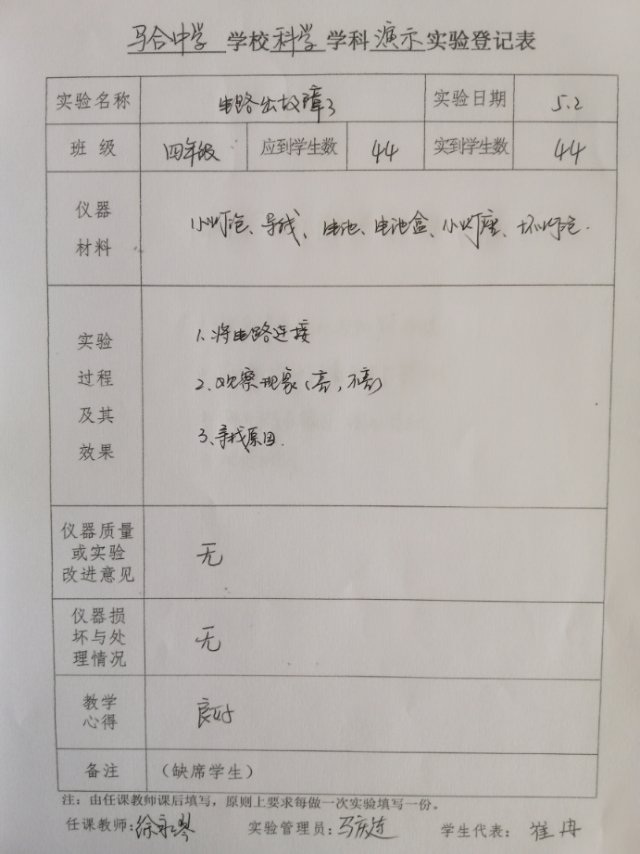 马合中学 学校 科学 学科 演示 实验登记表
实验名称 电路出故障了 实验日期 5.2
班 级 四年级 应到学生数 44 实到学生数 44
仪器
材料
小灯泡、导线、电池、电池盒、小灯座、坏灯泡.
实验
过程
及其
效果
1.将电路连接
2.观察现象(亮,不亮)
3.寻找原因.
仪器质量
或实验
改进意见
无
仪器损
坏与处
理情况
无
教学
心得
良好
备注 (缺席学生)
注:由任课教师课后填写,原则上要求每做一次实验填写一份。
任课教师:徐 实验管理员:马 学生代表:崔冉